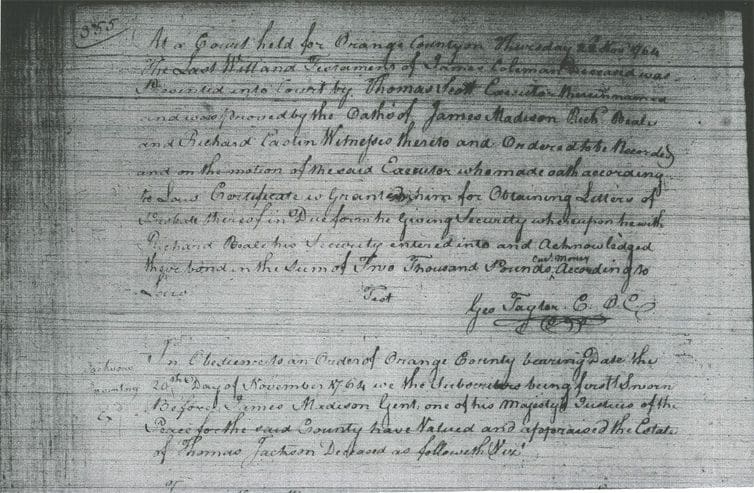 355
At a Court held for Orange County on Thursday Nov.r 1764
The Last Will and Testament of James Coleman Deceased was
Presented into Court by Thomas Scott Executor therein named
and was proved by the Oaths of James Madison Rich.d Beale
and Richard Witnesses thereto and Ordered to be Recorded
and on the motion of the said Executor who made oath according
to Law Certificate is Granted him for Obtaining Letters of
Probate thereof in Due form he Giving Security whereupon he with
Richard Beale his Security entered into and Acknowledged
their bond in the Sum of Two Thousand Pounds Cur.t Money According to
Law Test
Geo Taylor C. O. C.
Jackson's
In Obedience to an Order of Orange County bearing Date the
Day of November 1764 we the Subscribers being first Sworn
Before James Madison Gent. one of his Majestys Justices of the
Peace for the said County have Valued and appraised the Estate
of Thomas Jackson Deceased as followeth Viz.t